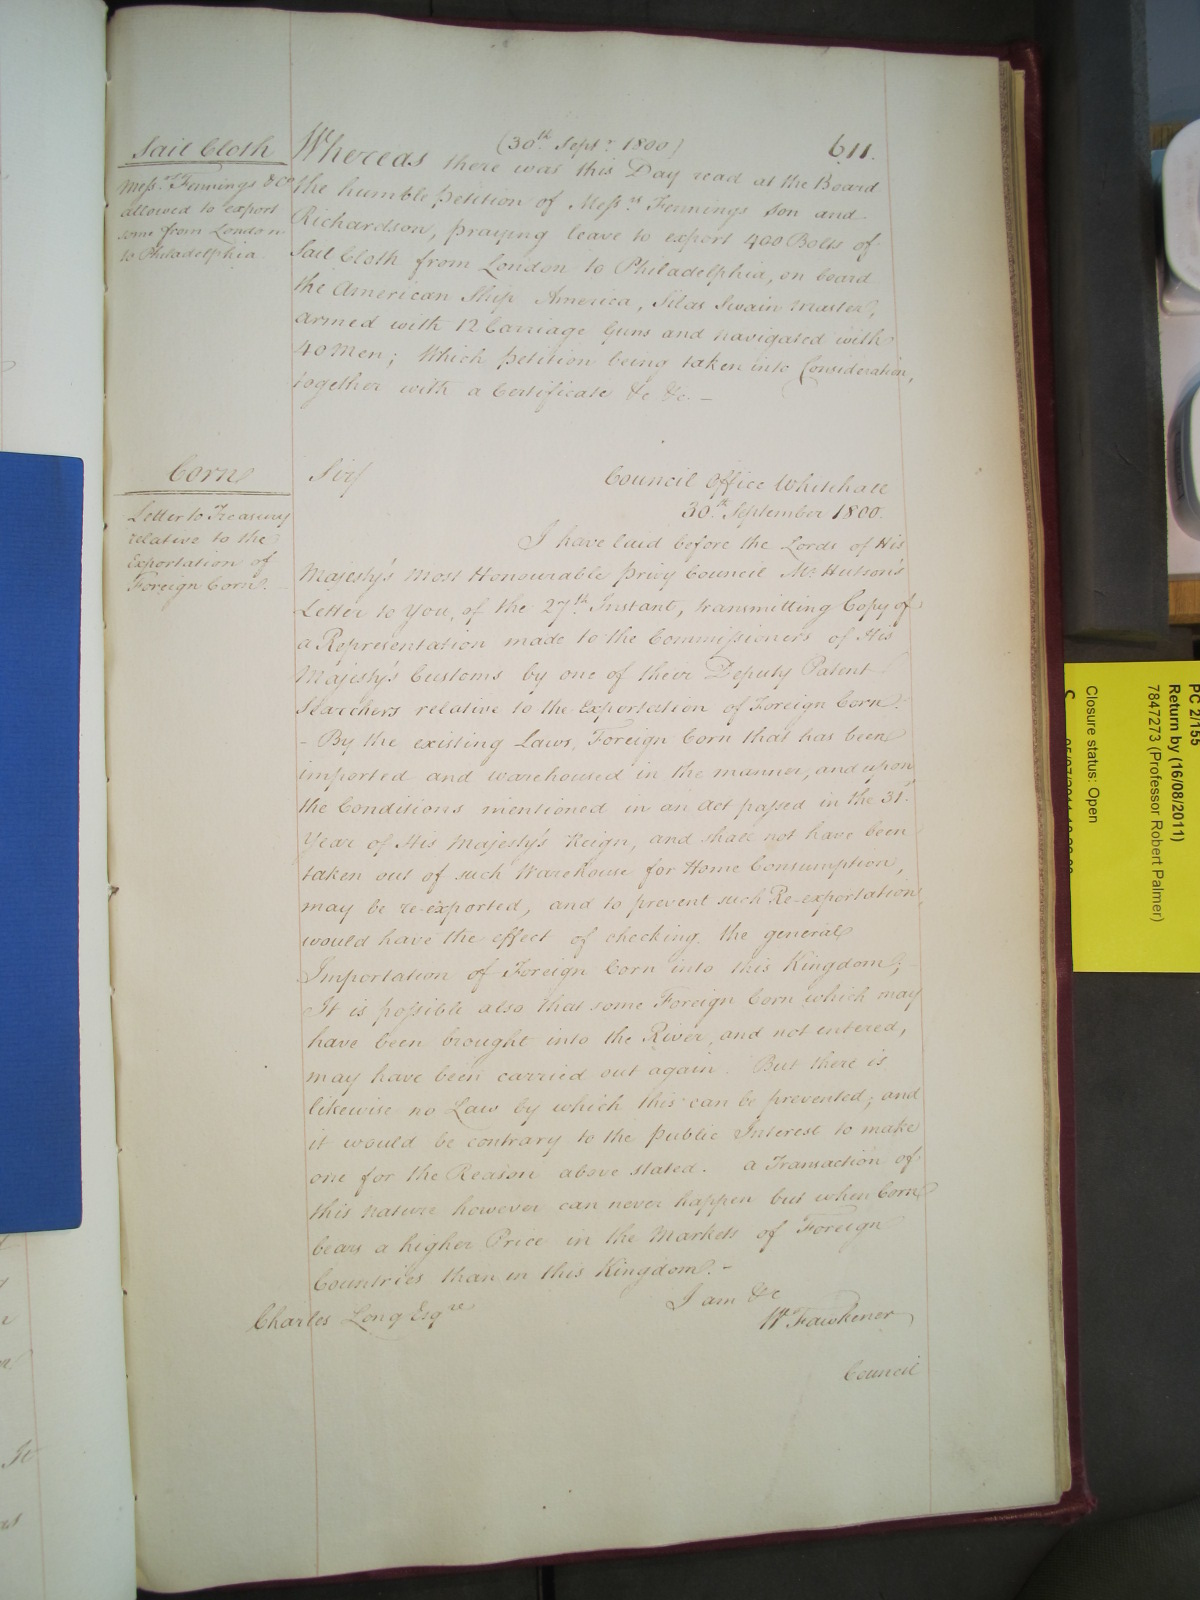 (30th Sept. 1800)
611.
Sail Cloth
Mess.rs Fennings & Co
allowed to export
some from London
to Philadelphia
Whereas there was this Day read at the Board
the humble Petition of Mess.rs Fennings Son and
Richardson, praying leave to export 400 Bolts of
Sail Cloth from London to Philadelphia, on board
the American Ship America, Silas Swain Master,
armed with 12 Carriage Guns and navigated with
40 Men; Which Petition being taken into Consideration,
together with a Certificate &c &c. —
Corn
Letter to Treasury
relative to the
Exportation of
Foreign Corn.
Sir/
Council Office Whitehall
30th September 1800.
I have laid before the Lords of His
Majesty's Most Honourable Privy Council Mr. Hutson's
Letter to You, of the 27th Instant, transmitting Copy of
a Representation made to the Commissioners of His
Majesty's Customs by one of their Deputy Patent
Searchers relative to the Exportation of Foreign Corn.
– By the existing Laws, Foreign Corn that has been
imported and warehoused in the manner, and upon
the Conditions mentioned in an Act passed in the 31st
Year of His Majesty's Reign, and shall not have been
taken out of such Warehouse for Home Consumption,
may be re-exported, and to prevent such Re-exportation,
would have the effect of checking the general
Importation of Foreign Corn into this Kingdom; –
It is possible also that some Foreign Corn which may
have been brought into the River, and not entered,
may have been carried out again. But there is
likewise no Law by which this can be prevented; and
it would be contrary to the Public Interest to make
one for the Reason above stated. a Transaction of
this nature however can never happen but when Corn
bears a higher Price in the Markets of Foreign
Countries than in this Kingdom. –
I am &c
W Fawkener
Charles Long Esqre
Council
PC 2/155
Return by (16/08/2011)
7847273 (Professor Robert Palmer)
Closure status: Open